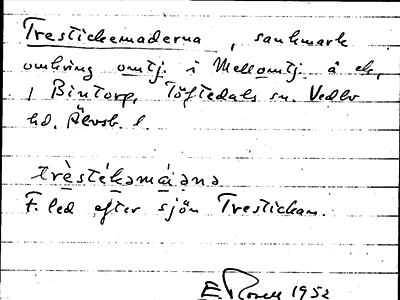 Trestickemaderna, sankmark
omkring omtj. i Mellomtj. å ek.
1 Bintorp, Töftedals sn. Vedbo
hd. Älvsb. l.
trèstékəmáiənə
F. led efter sjön Trestickan.
E. Rosell 1952